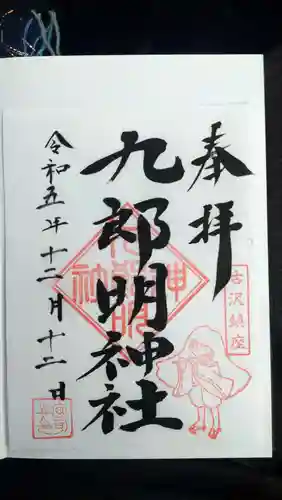 奉拝
古沢鎮座
九郎明神社
令和五年十二月十二日